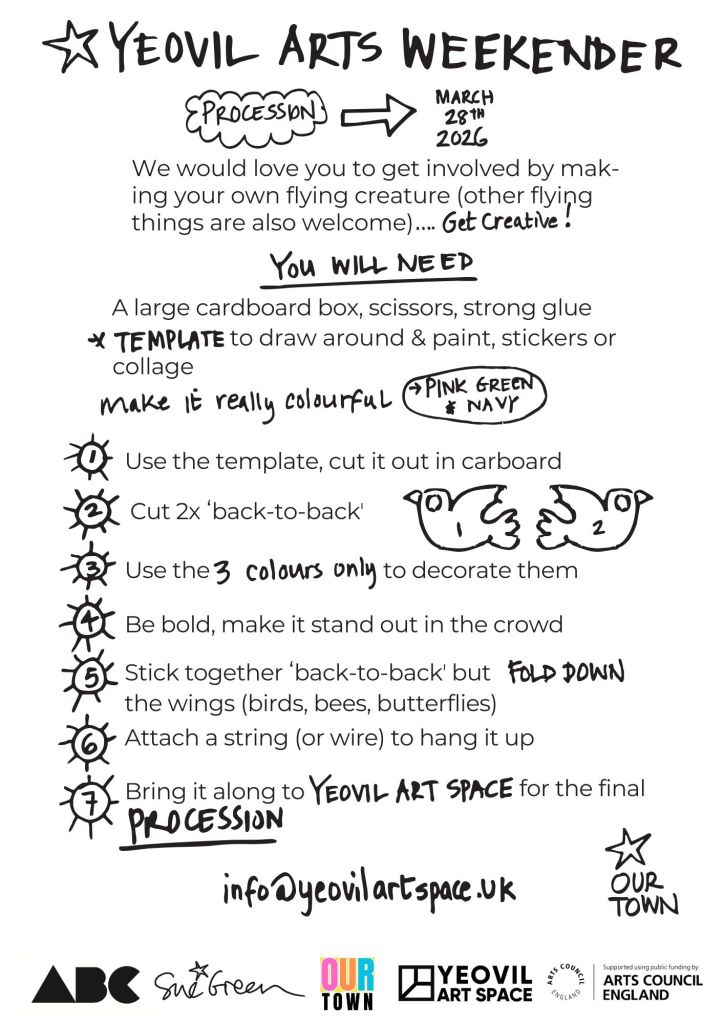 YEOVIL ARTS WEEKENDER
PROCESSION
MARCH
28TH
2026
We would love you to get involved by mak-
ing your own flying creature (other flying
things are also welcome).... Get Creative!
YOU WILL NEED
A large cardboard box, scissors, strong glue
TEMPLATE to draw around & paint, stickers or
collage
make it really colourful
PINK GREEN
& NAVY
1 Use the template, cut it out in carboard
2 Cut 2x ‘back-to-back'
1
2
3 Use the 3 colours only to decorate them
4 Be bold, make it stand out in the crowd
5 Stick together ‘back-to-back' but FOLD DOWN
the wings (birds, bees, butterflies)
6 Attach a string (or wire) to hang it up
7 Bring it along to YEOVIL ART SPACE for the final
PROCESSION
info@yeovilartspace.uk
OUR
TOWN
ABC
Sue Green
OUR
TOWN
YEOVIL
ART SPACE
ARTS COUNCIL
ENGLAND
Supported using public funding by
ARTS COUNCIL
ENGLAND